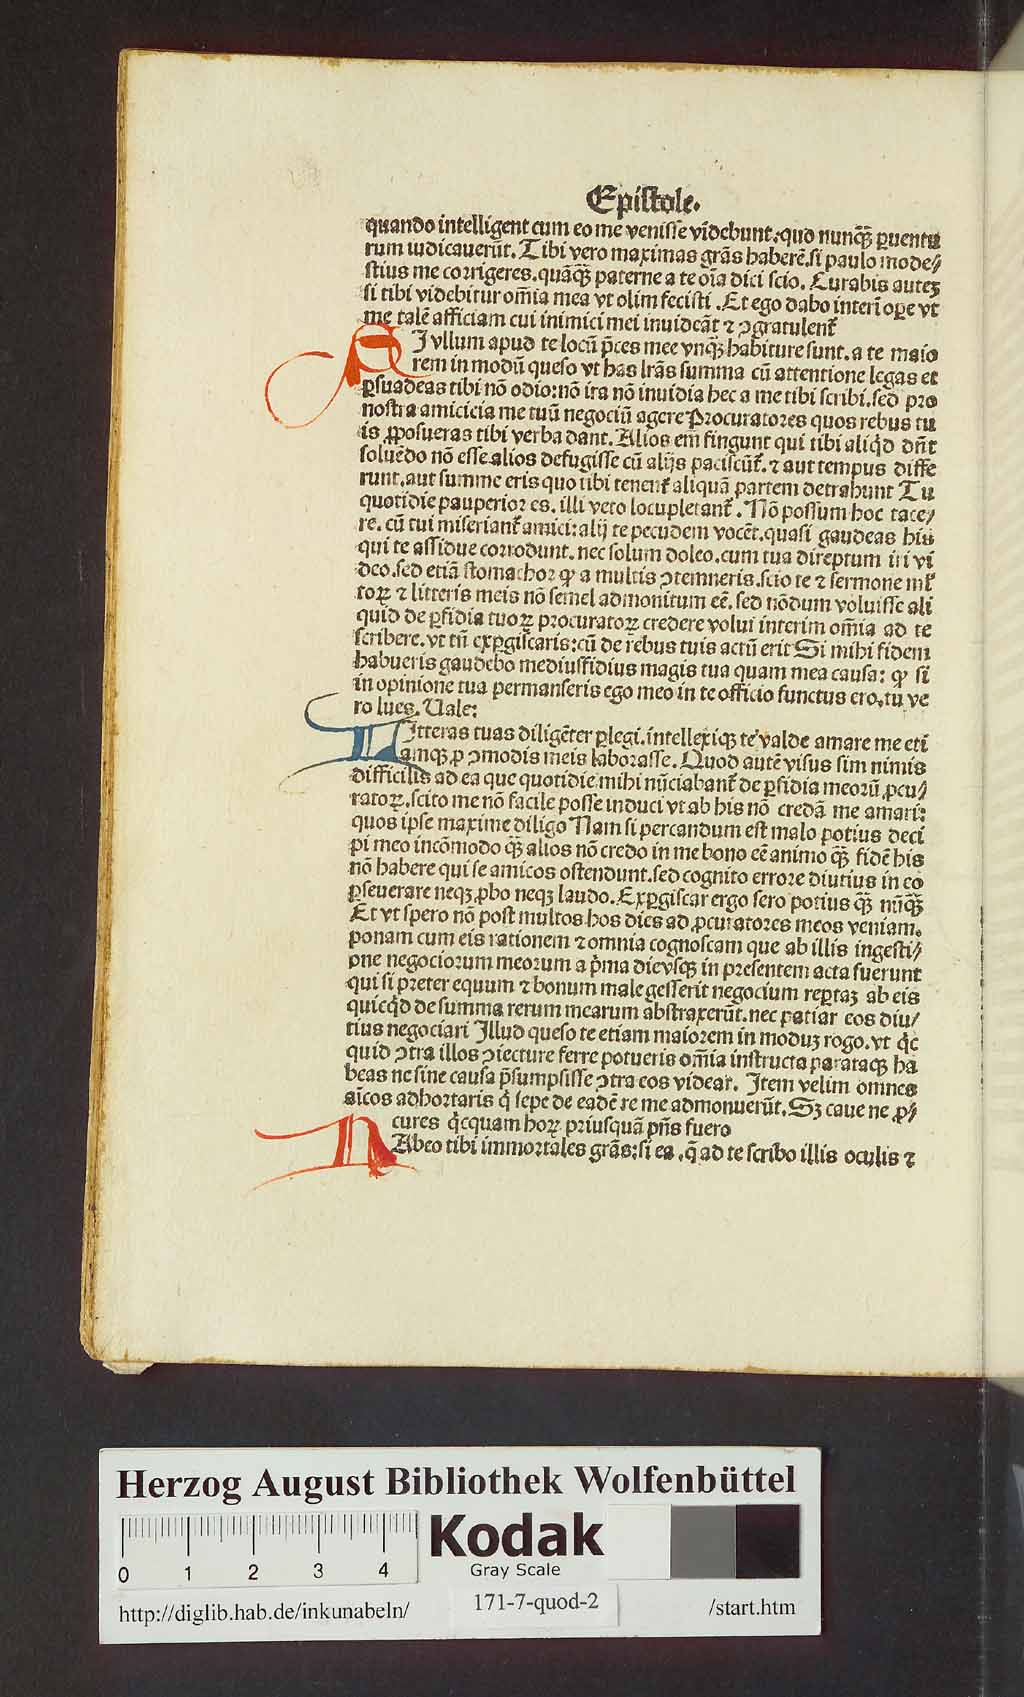 Epistole.
quando intelligent cum eo me venisse videbunt. quo nunq̃ʒ ꝑuentu
rum iudicauerũt. Tibi vero maximas grãs haberẽ. si paulo mode⸗
stius me corrigeres. quãq̃ʒ paterne a te oĩa dici scio. Curabis autẽ
si tibi videbitur om̃ia mea vt olim fecisti. Et ego dabo interĩ oꝑe vt
me talẽ afficiam cui inimici mei inuideãt ⁊ ↄgratulenť
SI vllum apud te locũ p̃ces mee vnqʒ habiture sunt. a te maio
rem in modũ queso vt has lr̃as summa cũ attentione legas et
ꝑsuadeas tibi nõ odio: nõ ira nõ inuidia hec a me tibi scribi. sed pro
nostra amicicia me tuũ negociũ agere Procuratores quos rebus tu
is ꝓposueras tibi verba dant. Alios em̃ fingunt qui tibi aliq̇d dñt
soluẽdo nõ esse. alios defugisse cũ alijs paciscũť. ⁊ aut tempus diffe
runt. aut summe eris quo tibi tenenť aliquã partem detrahunt Tu
quotidie pauperior es. illi vero locupletanť. Nõ possum hoc tace⸗
re. cũ tui miserianť amici: alij te pecudem vocẽt. quasi gaudeas his
qui te assidue corrodunt. nec solum doleo. cum tua direptum iri vi
deo. sed etiã stomachor ꝙ a multis ↄtemneris. scio te ⁊ sermone ml̃
toꝝ ⁊ litteris meis nõ semel admonitum eẽ. sed nõdum voluisse ali
quid de ꝑfidia tuoꝝ procuratoꝝ credere volui interim om̃ia ad te
scribere. vt tñ exꝑgiscaris: cũ de rebus tuis actũ erit Si mihi fidem
habueris gaudebo mediusfidius magis tua quam mea causa: ꝙ si
in opinione tua permanseris ego meo in te officio functus ero. tu ve
ro lues. Uale:
LItteras tuas diligẽter ꝑlegi. intellexiqʒ te valde amare me etĩ
amqʒ ꝑ ↄmodis meis laborasse. Quod autẽ visus sim nimis
difficilis ad ea que quotidie mihi nũciabanť de ꝑfidia meorũ ꝓcu⸗
ratoꝝ. scito me nõ facile posse induci vt ab his nõ credã me amari:
quos ipse maxime diligo Nam si peccandum est malo potius deci
pi meo incõmodo q̃ʒ alios nõ credo in me bono eẽ animo q̃ʒ fidẽ his
nõ habere qui se amicos ostendunt. sed cognito errore diutius in eo
ꝑseuerare neqʒ ꝓbo neqʒ laudo. Exꝑgiscar ergo sero potius q̃ʒ nũq̃ʒ
Et vt spero nõ post multos hos dies ad ꝓcuratores meos veniam.
ponam cum eis rationem ⁊ omnia cognoscam que ab illis in gesti⸗
one negociorum meorum a p̃ma die vsqʒ in presentem acta fuerunt
qui si preter equum ⁊ bonum male gesserĩt negocium reꝑtaʒ ab eis
quicq̇d de summa rerum mearum abstraxerũt. nec patiar eos diu⸗
tius negociari Illud queso te etiam maiorem in moduʒ rogo. vt q̇c
quid ↄtra illos ↄiecture ferre potueris om̃ia instructa parataqʒ ha
beas ne sine causa p̃sumpsisse ↄtra eos videar. Item velim omnes
aĩcos adhortaris q̇ sepe de eadẽ re me admonuerũt. Sʒ caue ne ꝓ⸗
cures q̇cquam hoꝝ priusquã pñs fuero
HAbeo tibi immortales grãs: si ea. q̃ ad te scribo illis oculis ⁊
Herzog August Bibliothek Wolfenbüttel
0 1 2 3 4
Kodak
Gray Scale
http://diglib.hab.de/inkunabeln/ 171-7-quod-2 /start.htm